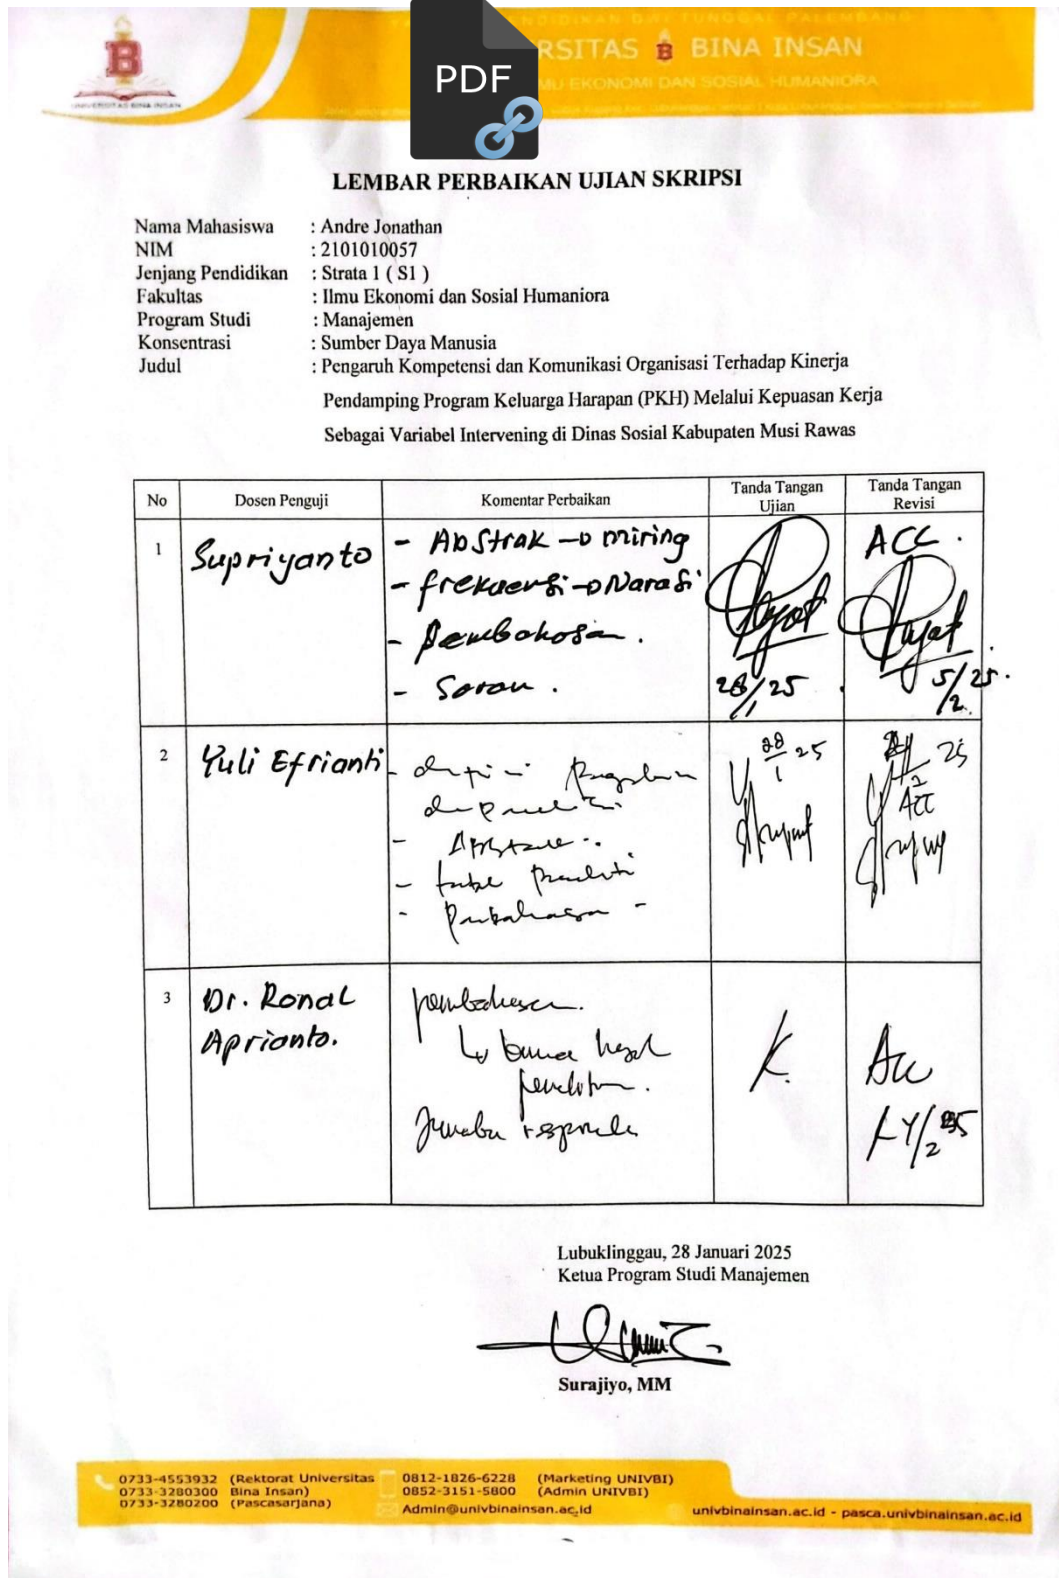 PENDIDIKAN TUNGGAL PALEMBANG
RSITAS B BINA INSAN
MU EKONOMI DAN SOSIAL HUMANIORA
B
UNIVERSITAS BINA INSAN
PDF
LEMBAR PERBAIKAN UJIAN SKRIPSI
Nama Mahasiswa : Andre Jonathan
NIM : 2101010057
Jenjang Pendidikan : Strata 1 ( S1 )
Fakultas : Ilmu Ekonomi dan Sosial Humaniora
Program Studi : Manajemen
Konsentrasi : Sumber Daya Manusia
Judul : Pengaruh Kompetensi dan Komunikasi Organisasi Terhadap Kinerja
Pendamping Program Keluarga Harapan (PKH) Melalui Kepuasan Kerja
Sebagai Variabel Intervening di Dinas Sosial Kabupaten Musi Rawas
No Dosen Penguji Komentar Perbaikan Tanda Tangan Ujian Tanda Tangan Revisi
1 Supriyanto
- Abstrak → miring
- frekuensi → Narasi
- Pembahasan.
- Saran.
28/1/25
ACC.
5/2/25.
2 Yuli Efrianti
28/1 25
25
ACC
3 Dr. Ronal
Aprianto.
pembahasan.
hasil
penelitian.
Acc
Lubuklinggau, 28 Januari 2025
Ketua Program Studi Manajemen
Surajiyo, MM
0733-4553932 (Rektorat Universitas
0733-3280300 Bina Insan)
0733-3280200 (Pascasarjana)
0812-1826-6228 (Marketing UNIVBI)
0852-3151-5800 (Admin UNIVBI)
Admin@univbinainsan.ac.id
univbinainsan.ac.id - pasca.univbinainsan.ac.id